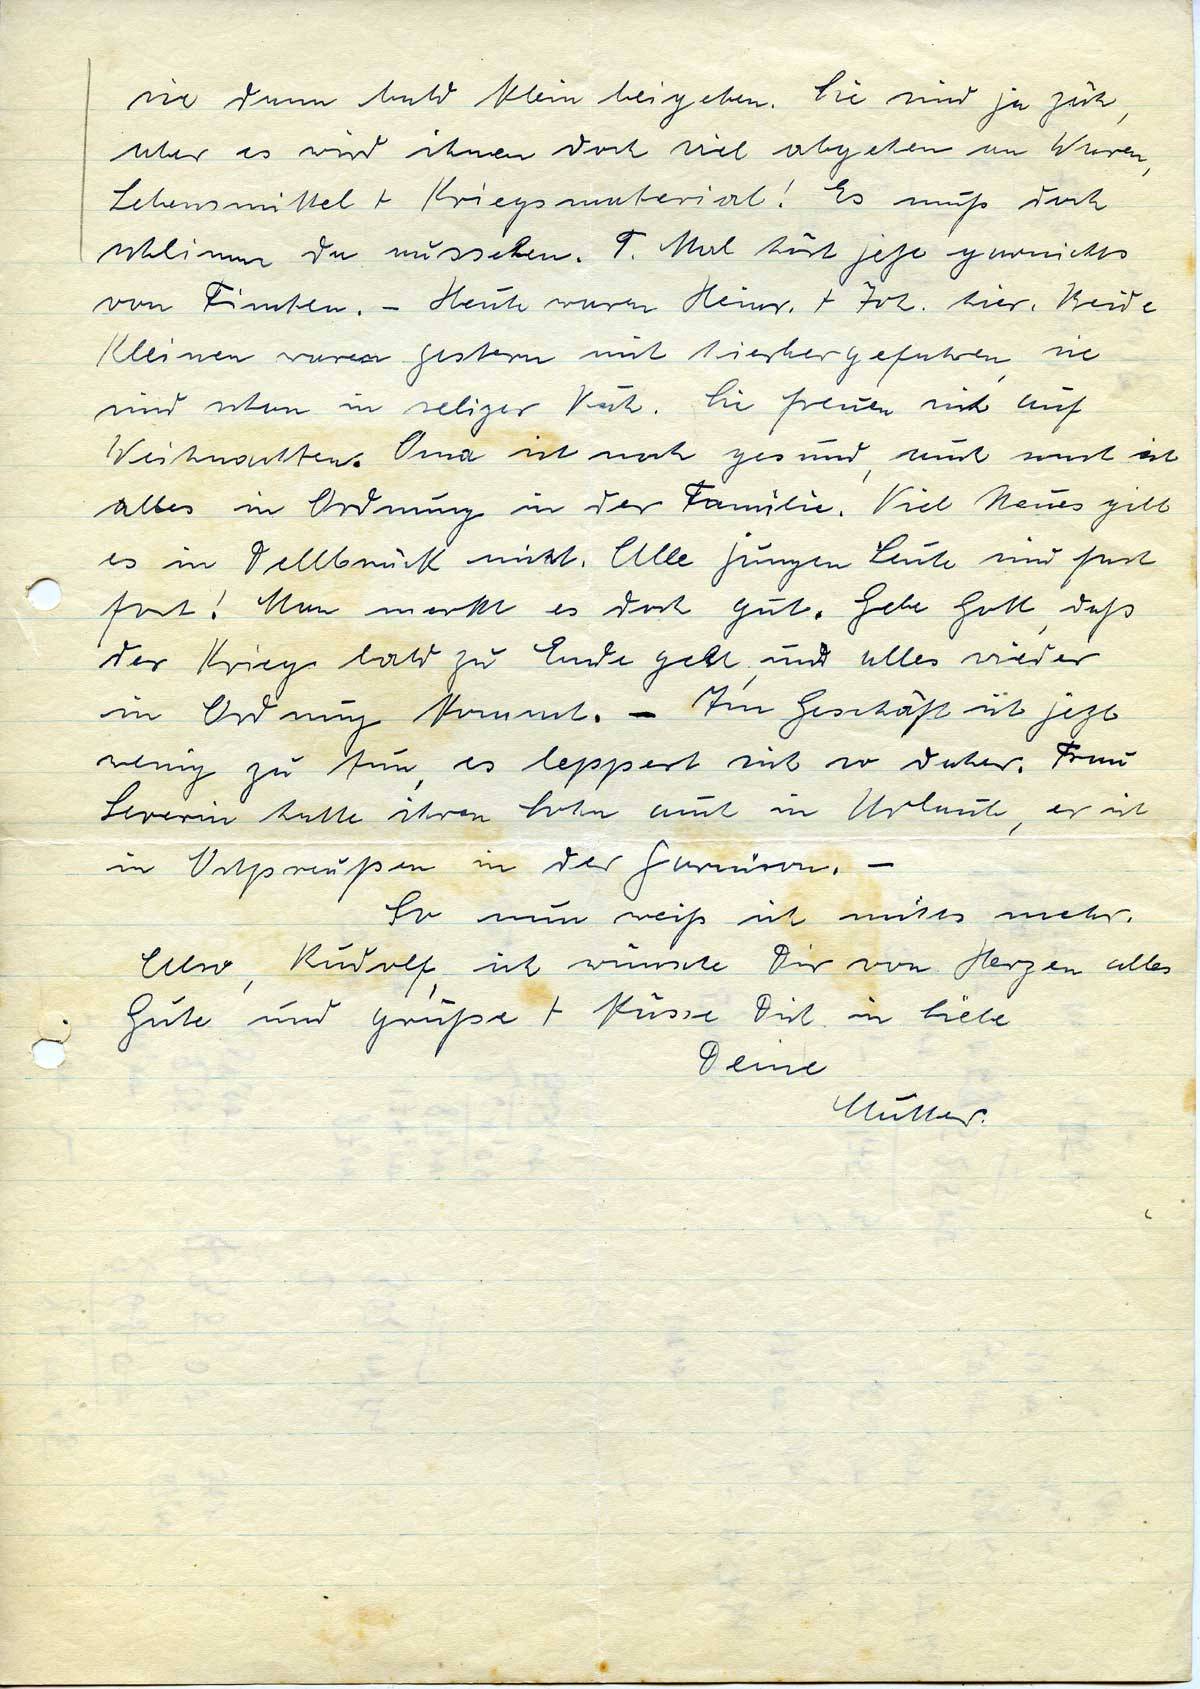 sie dann bald klein beigeben. Sie sind ja zäh,
aber es wird ihnen doch viel abgehen an Waren,
Lebensmittel + Kriegsmaterial! Es muß doch
schlimm da aussehen. T. Mal hört jetzt garnichts
von Finchen. – Heute waren Heinr. + Joh. hier. Beide
Kleinen waren gestern mit hierhergefahren, sie
sind schon in seliger Zeit. Sie freuen sich auf
Weihnachten. Oma ist noch gesund, auch sonst ist
alles in Ordnung in der Familie. Viel Neues gibt
es in Dellbrück nicht. Alle jungen Leute sind fast
fort! Man merkt es doch gut. Gebe Gott, daß
der Krieg bald zu Ende geht, und alles wieder
in Ordnung kommt. – Im Geschäft ist jetzt
wenig zu tun, es leppert sich so daher. Frau
Severin hatte ihren Sohn auch in Urlaub, er ist
in Ostpreußen in der Garnison. –
So nun weiß ich nichts mehr.
Also, Rudolf, ich wünsche Dir von Herzen alles
Gute und grüße + küsse Dich in Liebe
Deine
Mutter.